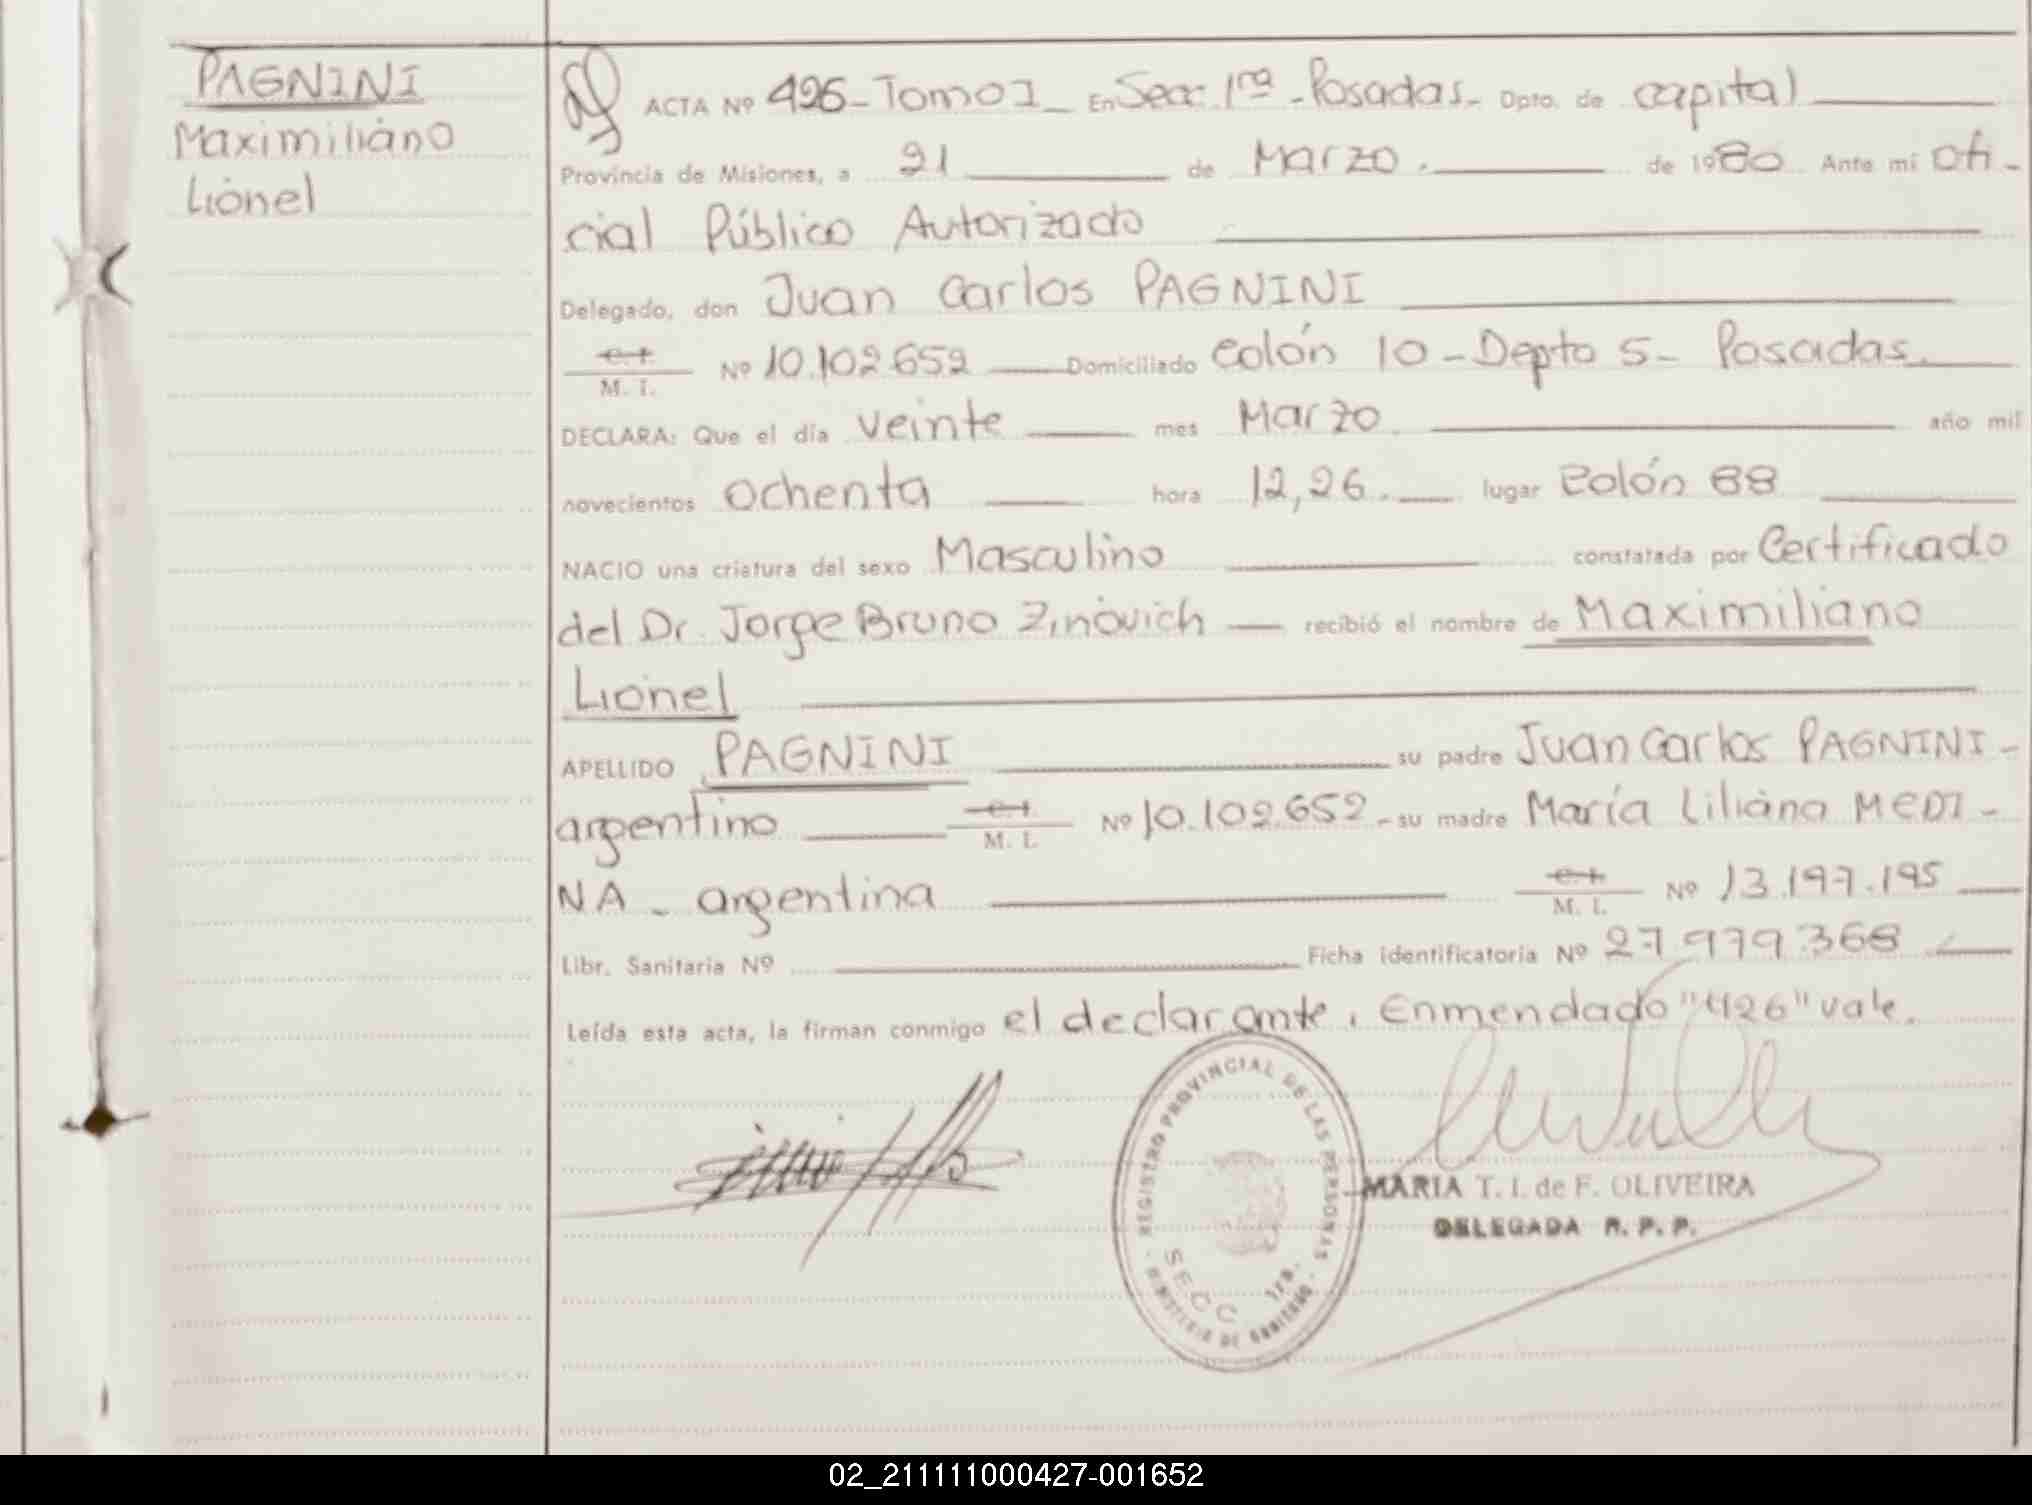 PAGNINI
Maximiliano
Lionel
ACTA Nº 426 - Tomo I - En Secc 1ra - Posadas - Dpto. de capital
Provincia de Misiones, a 21 de Marzo. de 1980 Ante mi Ofi-
cial Público Autorizado
Delegado, don Juan Carlos PAGNINI
C.I. / M. I. Nº 10.102.652 Domiciliado Colón 10 - Depto 5 - Posadas.
DECLARA: Que el día veinte mes Marzo año mil
novecientos ochenta hora 12,26. lugar Colón 88
NACIO una criatura del sexo Masculino constatada por Certificado
del Dr. Jorge Bruno Zinovich recibió el nombre de Maximiliano
Lionel
APELLIDO PAGNINI su padre Juan Carlos PAGNINI -
argentino C.I. / M. I. Nº 10.102.652 - su madre María Liliana MEDI-
NA - argentina C.I. / M. I. Nº 13.197.195
Libr. Sanitaria Nº Ficha identificatoria Nº 27.979.368
Leída esta acta, la firman conmigo el declarante. Enmendado "426" vale.
REGISTRO PROVINCIAL DE LAS PERSONAS
SECC 1ra.
MINISTERIO DE GOBIERNO
MARIA T. I. de F. OLIVEIRA
DELEGADA R. P. P.
02_211111000427-001652